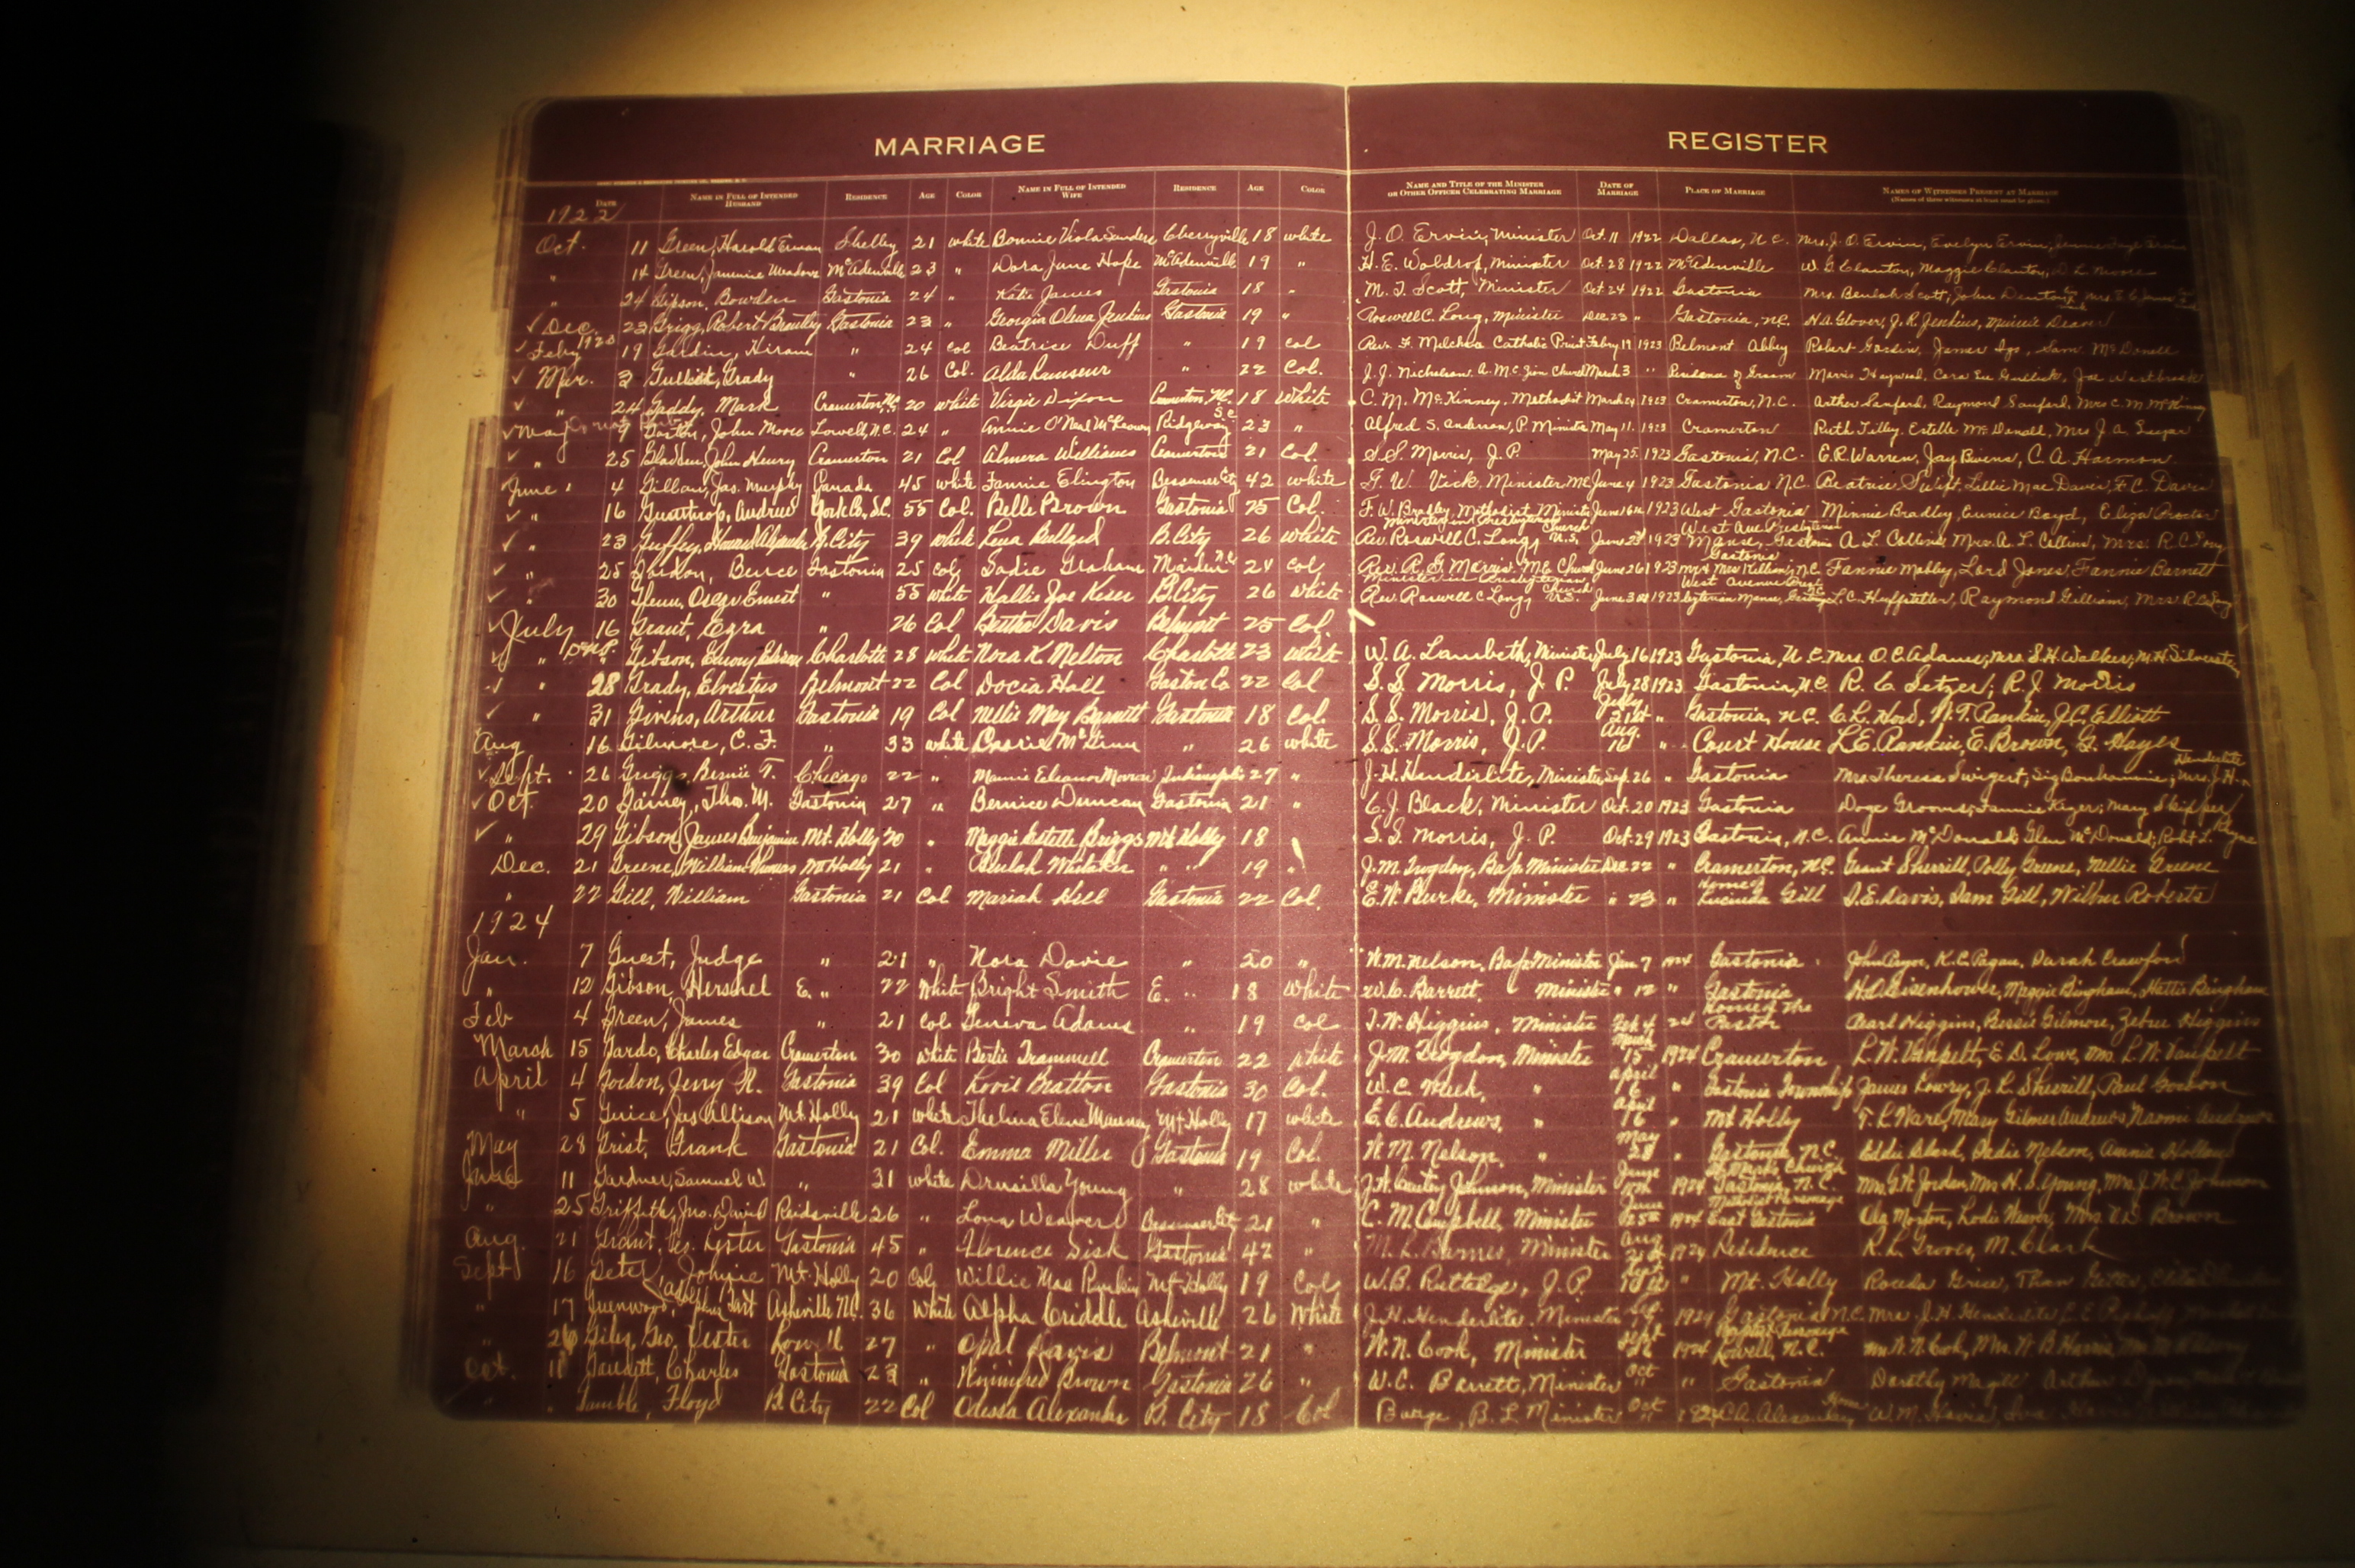 MARRIAGE REGISTER
DATE NAME IN FULL OF INTENDED HUSBAND RESIDENCE AGE COLOR NAME IN FULL OF INTENDED WIFE RESIDENCE AGE COLOR NAME AND TITLE OF THE MINISTER OR OTHER OFFICER CELEBRATING MARRIAGE DATE OF MARRIAGE PLACE OF MARRIAGE NAMES OF WITNESSES PRESENT AT MARRIAGE (Names of three witnesses at least must be given.)
1922
Oct. 11 Green, Harold Shelby 21 white Bonnie Viola Sanders Cherryville 18 white J. O. Ervin, Minister Oct. 11 1922 Dallas, N.C. Mrs. J. O. Ervin, Evelyn Ervin,
" 14 Green, Meadows McAdenville 23 " Dora Jane Hope McAdenville 19 " H. E. Waldrop, Minister Oct. 28 1922 McAdenville W. G. Clanton, Maggie Clanton, D. L. Moore
" 24 Gipson, Bowden Gastonia 24 " Katie James Gastonia 18 " M. T. Scott, Minister Oct 24 1922 Gastonia Mrs. Beulah Scott, John Denton,
✓ Dec. 23 Grigg, Robert Brantley Gastonia 23 " Georgia Jenkins Gastonia 19 " Roswell C. Long, Minister Dec. 23 " Gastonia, N.C. H. A. Glover, J. R. Jenkins, Minnie Deaver
✓ Feby 1923 19 Gardin, Hiram " 24 col Beatrice Duff " 19 col Rev. F. Catholic Priest Febry 19 1923 Belmont Abbey Robert Gardin, James Igo, Sam McDonell
✓ Mar. 3 Gullick, Grady " 26 Col. Alda Ramseur " 22 Col. J. J. Nicholson, A. M. E. Zion Church March 3 " Residence of Groom Morris Haywood, Cora Lee Gullick, Joe Westbrooks
✓ " 24 Gaddy, Mark Cramerton, N.C. 20 white Virgie Dixon Cramerton, N.C. 18 White C. M. McKinney, Methodist March 24 1923 Cramerton, N.C. Arthur Sanford, Raymond Sanford, Mrs C. M. McKinney
✓ May 9 Gaston, John Moore Lowell, N.C. 24 " Annie O'Neal McKeown Ridgeway S.C. 23 " Alfred S. Anderson, P. Minister May 11. 1923 Cramerton Ruth Tilley, Estelle McDonald, Mrs J. A.
✓ " 25 Gladden, John Henry Cramerton 21 Col Almera Williams Cramerton 21 Col. S. S. Morris, J. P. May 25 1923 Gastonia, N.C. E. R. Warren, Jay Bivens, C. A. Harmon
✓ June 4 Jas. Murphy Canada 45 white Fannie Elington Bessemer City 42 white G. W. Vick, Minister M.E. June 4 1923 Gastonia N.C. Beatrice Swift, Lillie Mae Davis, F. C. Davis
✓ " 16 Andrew York Co., S.C. 55 Col. Belle Brown Gastonia 75 Col. F. W. Bradley, Methodist Minister June 16 1923 West Gastonia Minnie Bradley, Eunice Boyd, Eliza Proctor
✓ " 23 Guffey, Howard Alexander B. City 39 white Lena Bullard B. City 26 white Rev. Roswell C. Long, Minister in Presbyterian Church U.S. June 23 1923 West Ave. Presbyterian Manse, Gastonia A. L. Collins, Mrs. A. L. Collins, Mrs. R. C. Long
✓ " 25 Gordon, Gastonia 25 col Sadie Graham Maiden N.C. 24 col Rev. R. G. Morris, M.E. Church June 26 1923 Gastonia N.C. Fannie Mobley, Lord Jones, Fannie Barnett
✓ " 30 Glenn, Oscar Ernest " 55 white Hallie Zoe Kiser B. City 26 white Rev. Roswell C. Long, Minister in Presbyterian Church U.S. June 30 1923 West Avenue Presbyterian Manse, L. C. Huffstetler, Raymond Gilliam, Mrs R. C. Long
✓ July 16 Grant, Ezra " 26 Col Bertha Davis Belmont 25 Col.
✓ " " Gibson, Emory Charlotte 28 white Nora K Melton Charlotte 23 white W. A. Lambeth, Minister July 16 1923 Gastonia, N.C. Mrs. O. C. Adams, Mrs. S. H. Walker, M. H. Silverstein
✓ " 28 Grady, Belmont 22 Col Docia Hall Gaston Co 22 Col S. S. Morris, J. P. July 28 1923 Gastonia, N.C. R. C. Setzer, R. J. Morris
✓ " 31 Givens, Arthur Gastonia 19 Col Nellie May Barnett Gastonia 18 Col. S. S. Morris, J. P. July 31st " Gastonia, N.C. C. L. W. T. Rankin, J. C. Elliott
Aug 16 Gilmore, C. F. " 33 white Carrie McGinn " 26 white S. S. Morris, J. P. Aug. 16 " Court House L. E. Rankin, E. Brown, G. Hayes
✓ Sept. 26 Griggs, Bernie T. Chicago 22 " Mamie Eleanor Morrow Indianapolis 27 " J. H. Henderlite, Minister Sep. 26 " Gastonia Mrs. Theresa Swigert, Sig Mrs. J. H. Henderlite
✓ Oct. 20 Gainey, Tho. M. Gastonia 27 " Bernice Duncan Gastonia 21 " C. J. Black, Minister Oct. 20 1923 Gastonia Doge Grooms, Fannie Kizer, Mary Skipper
✓ " 29 Gibson, James Benjamin Mt. Holly 20 " Maggie Estelle Briggs Mt Holly 18 S. S. Morris, J. P. Oct. 29 1923 Gastonia, N.C. Annie McDonald, Glen McDonald, Robt L. Rhyne
Dec. 21 Greene, William Thomas Mt Holly 21 " Beulah Whitaker " 19 " J. M. Trogdon, Bap. Minister Dec 22 " Cramerton, N.C. Grant Sherrill, Polly Greene, Nellie Greene
" 22 Gill, William Gastonia 21 Col Mariah Hill Gastonia 22 Col. E. W. Burke, Minister " 23 " Home of Lucinda Gill S. E. Davis, Sam Gill, Wilbur Roberts
1924
Jan. 7 Guest, Judge " 21 " Nora Davie " 20 " W. M. Nelson, Bap Minister Jan 7 1924 Gastonia K. C. Pagan, Sarah Crawford
" 12 Gibson, Herschel E. " 22 White Bright Smith E. " 18 White W. C. Barrett, " Minister " 12 " Gastonia H. A. Eisenhower, Maggie Bingham, Hattie Bingham
Feb 4 Green, James " 21 Col Geneva Adams " 19 Col T. W. Higgins, Minister Feb 4 24 Home of the Pastor Pearl Higgins, Bessie Gilmore, Zebree Higgins
March 15 Gardo, Charles Edgar Cramerton 30 white Bertie Trammell Cramerton 22 white J. M. Trogdon, Minister March 15 1924 Cramerton L. W. Vanpelt, E. D. Lowe, Mrs. L. W. Vanpelt
April 4 Gordon, Jerry R. Gastonia 39 Col Lovie Bratton Gastonia 30 Col. W. C. " April 6 " Gastonia Township James Lowry, J. L. Sherrill, Paul Gordon
" 5 Guice, Jas Allison Mt. Holly 21 white Thelma Mt Holly 17 white E. C. Andrews, " April 16 " Mt Holly T. L. Ware, Mary Gilmer Andrews, Naomi Andrews
May 28 Grist, Frank Gastonia 21 Col. Emma Miller Gastonia 19 Col. W. M. Nelson, " May 28 " Gastonia, N.C. Eddie Sadie Nelson, Annie Holland
June 11 Gardner, Samuel W. " 31 white Drusilla Young " 28 white J. W. Cantey Johnson, Minister June 1924 St. Mark's Church Gastonia N.C. Mrs. G. A. Jorden, Mrs H. S. Young, Mrs J. W. C. Johnson
" 25 Griffith, Jno. David Reidsville 26 " Lona Weaver Bessemer City 21 " C. M. Campbell, Minister June 25th 1924 Methodist Parsonage East Gastonia Morton, Lodie Weaver, Mrs. Brown
Aug. 21 Grant, Lester Gastonia 45 " Florence Sisk Gastonia 42 " M. L. Barnes, Minister Aug 21st 1924 Residence R. L. Groves, M. Clark
Sept 16 Geter, Johnie Mt. Holly 20 Col Willie Mae Rankin Mt Holly 19 Col W. B. Rutledge, J. P. Sept " Mt. Holly Rosella Grice, Than Geter,
" 17 Greenwood, Asheville N.C. 36 White Alpha Criddle Asheville 26 White J. H. Henderlite, Minister 1924 Gastonia N.C. Mrs. J. H. Henderlite,
" 26 Giles, Geo. Vester Lowell 27 " Opal Davis Belmont 21 " W. N. Cook, Minister Sept 1924 Baptist Parsonage Lowell, N.C. Mrs W. N. Cook, Mrs. W. B. Harris,
Oct. 11 Garrett, Charles Gastonia 23 " Winnifred Brown Gastonia 26 " W. C. Barrett, Minister Oct " Gastonia Dorothy Magill
" Gamble, Floyd B. City 22 Col Odessa Alexander B. City 18 Col Barge, B. L. Minister Oct C. A. Alexander Home W. M.